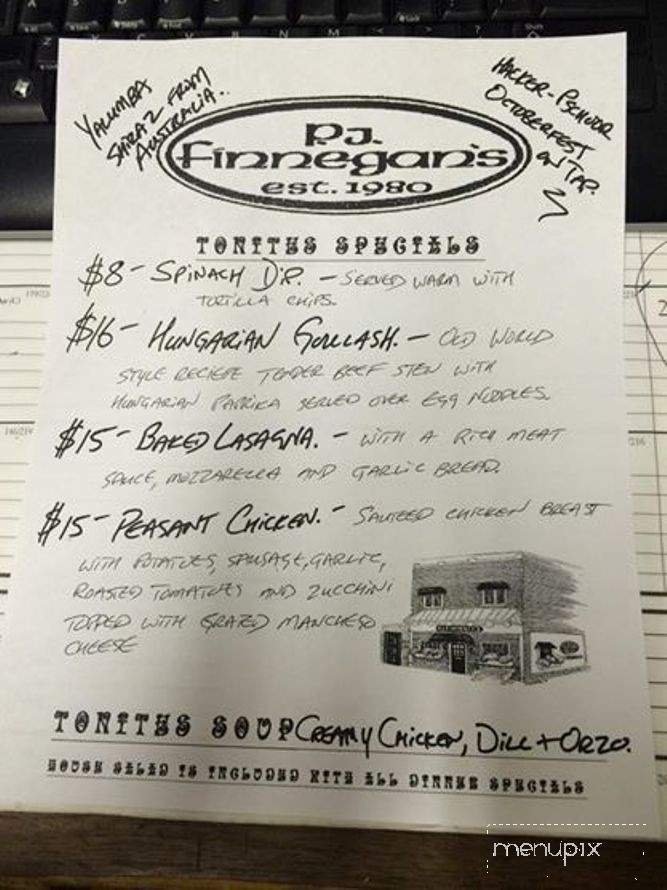 YALUMBA
SHIRAZ FROM
AUSTRALIA..
HACKER-PSCHOOR
OCTOBERFEST
ON TAP.
P.J.
Finnegan's
est. 1980
TONITES SPECIALS
$8 - SPINACH DIP. - SERVED WARM WITH
TORTILLA CHIPS.
$16 - HUNGARIAN GOULLASH. - OLD WORLD
STYLE RECIEPE TENDER BEEF STEW WITH
HUNGARIAN PAPRIKA SERVED OVER EGG NOODLES.
$15 - BAKED LASAGNA. - WITH A RICH MEAT
SAUCE, MOZZARELLA AND GARLIC BREAD.
$15 - PEASANT CHICKEN. - SAUTEED CHICKEN BREAST
WITH POTATOES, SAUSAGE, GARLIC,
ROASTED TOMATOES AND ZUCCHINI
TOPPED WITH GRATED MANCHEGO
CHEESE
TONITES SOUP CREAMY CHICKEN, DILL + ORZO.
HOUSE SALAD IS INCLUDED WITH ALL DINNER SPECIALS
menupix